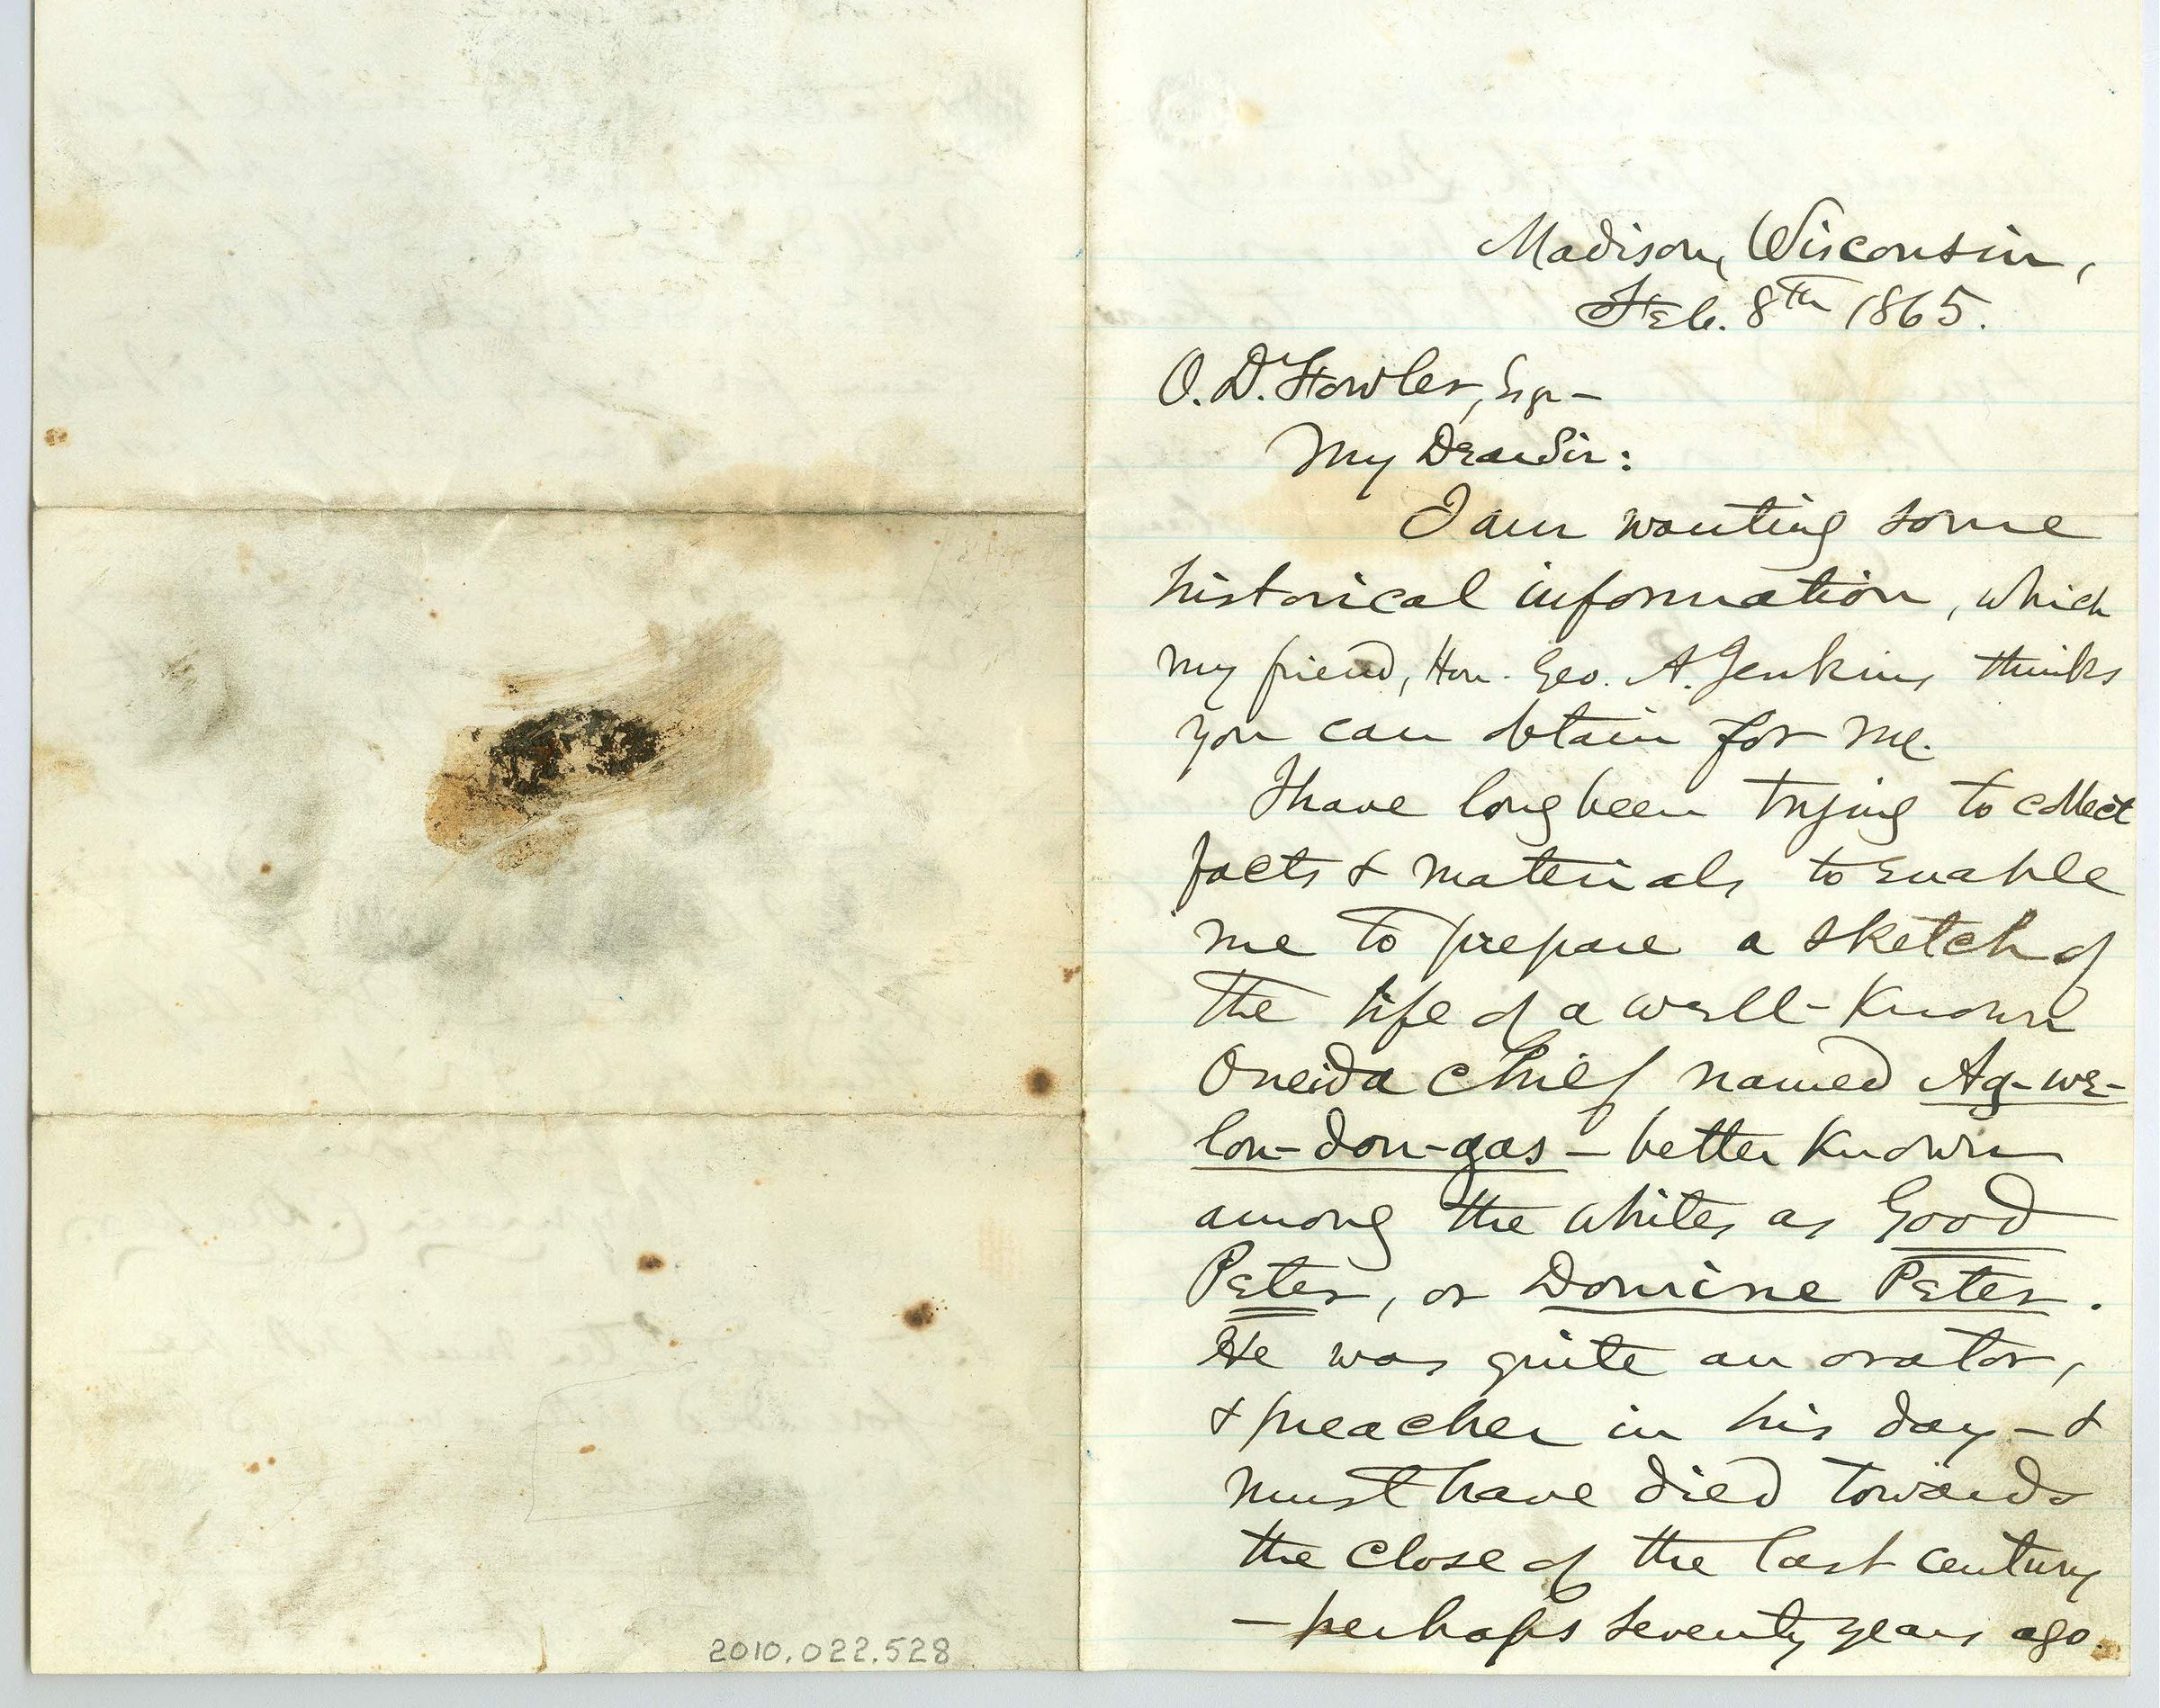 Madison, Wisconsin,
Feb. 8th 1865.
O. D. Fowler, Esqr—
My Dear Sir:
I am wanting some
historical information, which
my friend, Hon. Geo. A. Jenkins thinks
you can obtain for me.
I have long been trying to collect
facts & materials to enable
me to prepare a sketch of
the life of a well-known
Oneida chief named Ag-we-
lon-don-gas — better known
among the whites as Good
Peter, or Domine Peter.
He was quite an orator,
& preacher in his day — &
must have died towards
the close of the last century
— perhaps seventy years ago.
2010.022.528